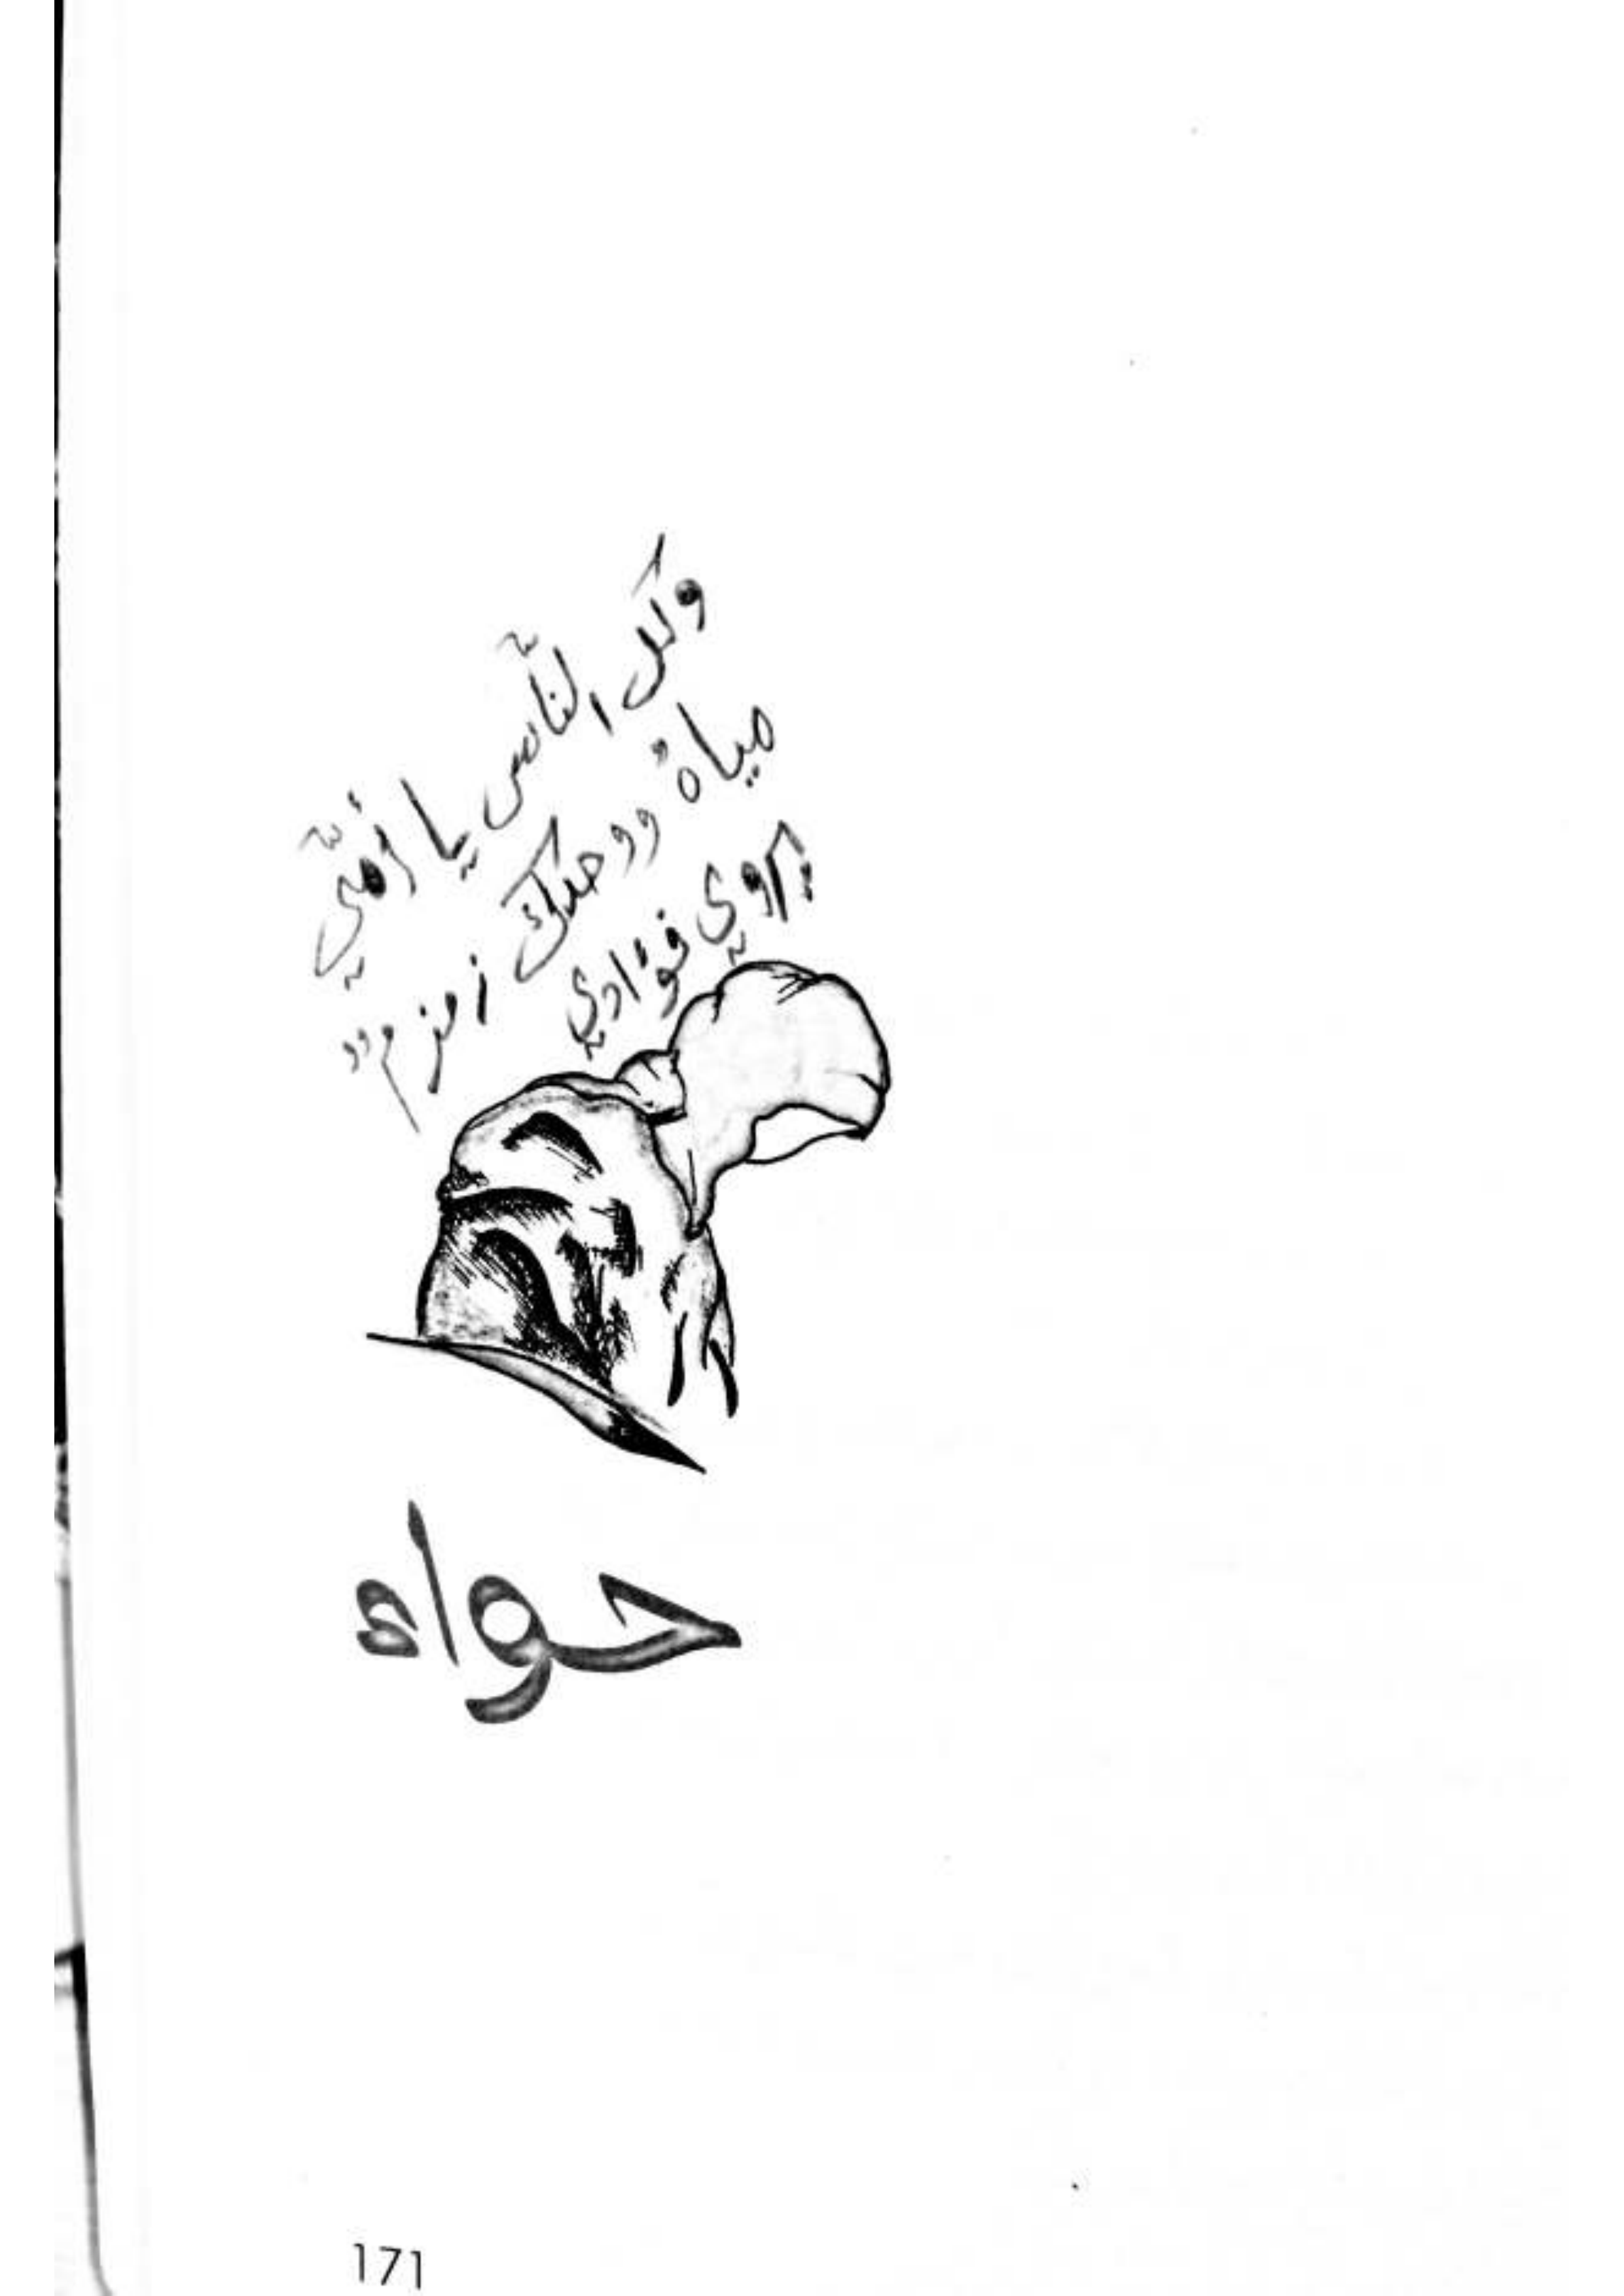 وكل النّاس يا أمّي
مياهٌ ووحدك زمزم""
يروي فؤادي
حواء
171